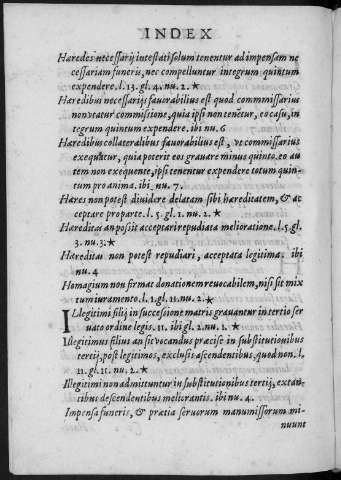 INDEX
Hæredes necessarij intestati solum tenentur ad impensam ne
cessariam funeris, nec compelluntur integrum quintum
expendere. l. 13. gl. 4. nu. 2. ★
Hæredibus necessarijs fauorabilius est quod commmissarius
non vtatur commissione, quia ipsi non tenẽtur, eo casu, in
tegrum quintum expendere. ibi nu. 6
Hæredibus collateralibus fauorabilius est, vt commissarius
exequatur, quia poterit eos grauare minus quinto. eo au
tem non exequente, ipsi tenentur expendere totum quin-
tum pro anima. ibi nu. 7.
Hæres non potest diuidere delatam sibi hæreditatem, & ac
ceptare pro parte. l. 5. gl. 1. nu. 2. ★
Hæreditas an possit acceptari repudiata melioratione. l. 5. gl.
3. nu. 3. ★
Hæreditas non potest repudiari, acceptata legitima. ibi
nu. 4
Homagium non firmat donationem reuocabilem, nisi sit mix
tum iuramento. l. 1. gl. 11. nu. 2. ★
ILlegitimi filij in successione matris grauantur in tertio ser
uato ordine legis. 11. ibi gl. 2. nu. 1. ★
Illegitimus filius an sit vocandus præcise in substitutionibus
tertij, post legitimos, exclusis ascendentibus, quod non. l,
11. gl. 11. nu. 2. ★
Illegitimi non admittuntur in substitutionibus tertij, extan-
tibus descendentibus meliorantis. ibi nu. 4.
Impensa funeris, & prætia seruorum manumissorum mi-
nuunt